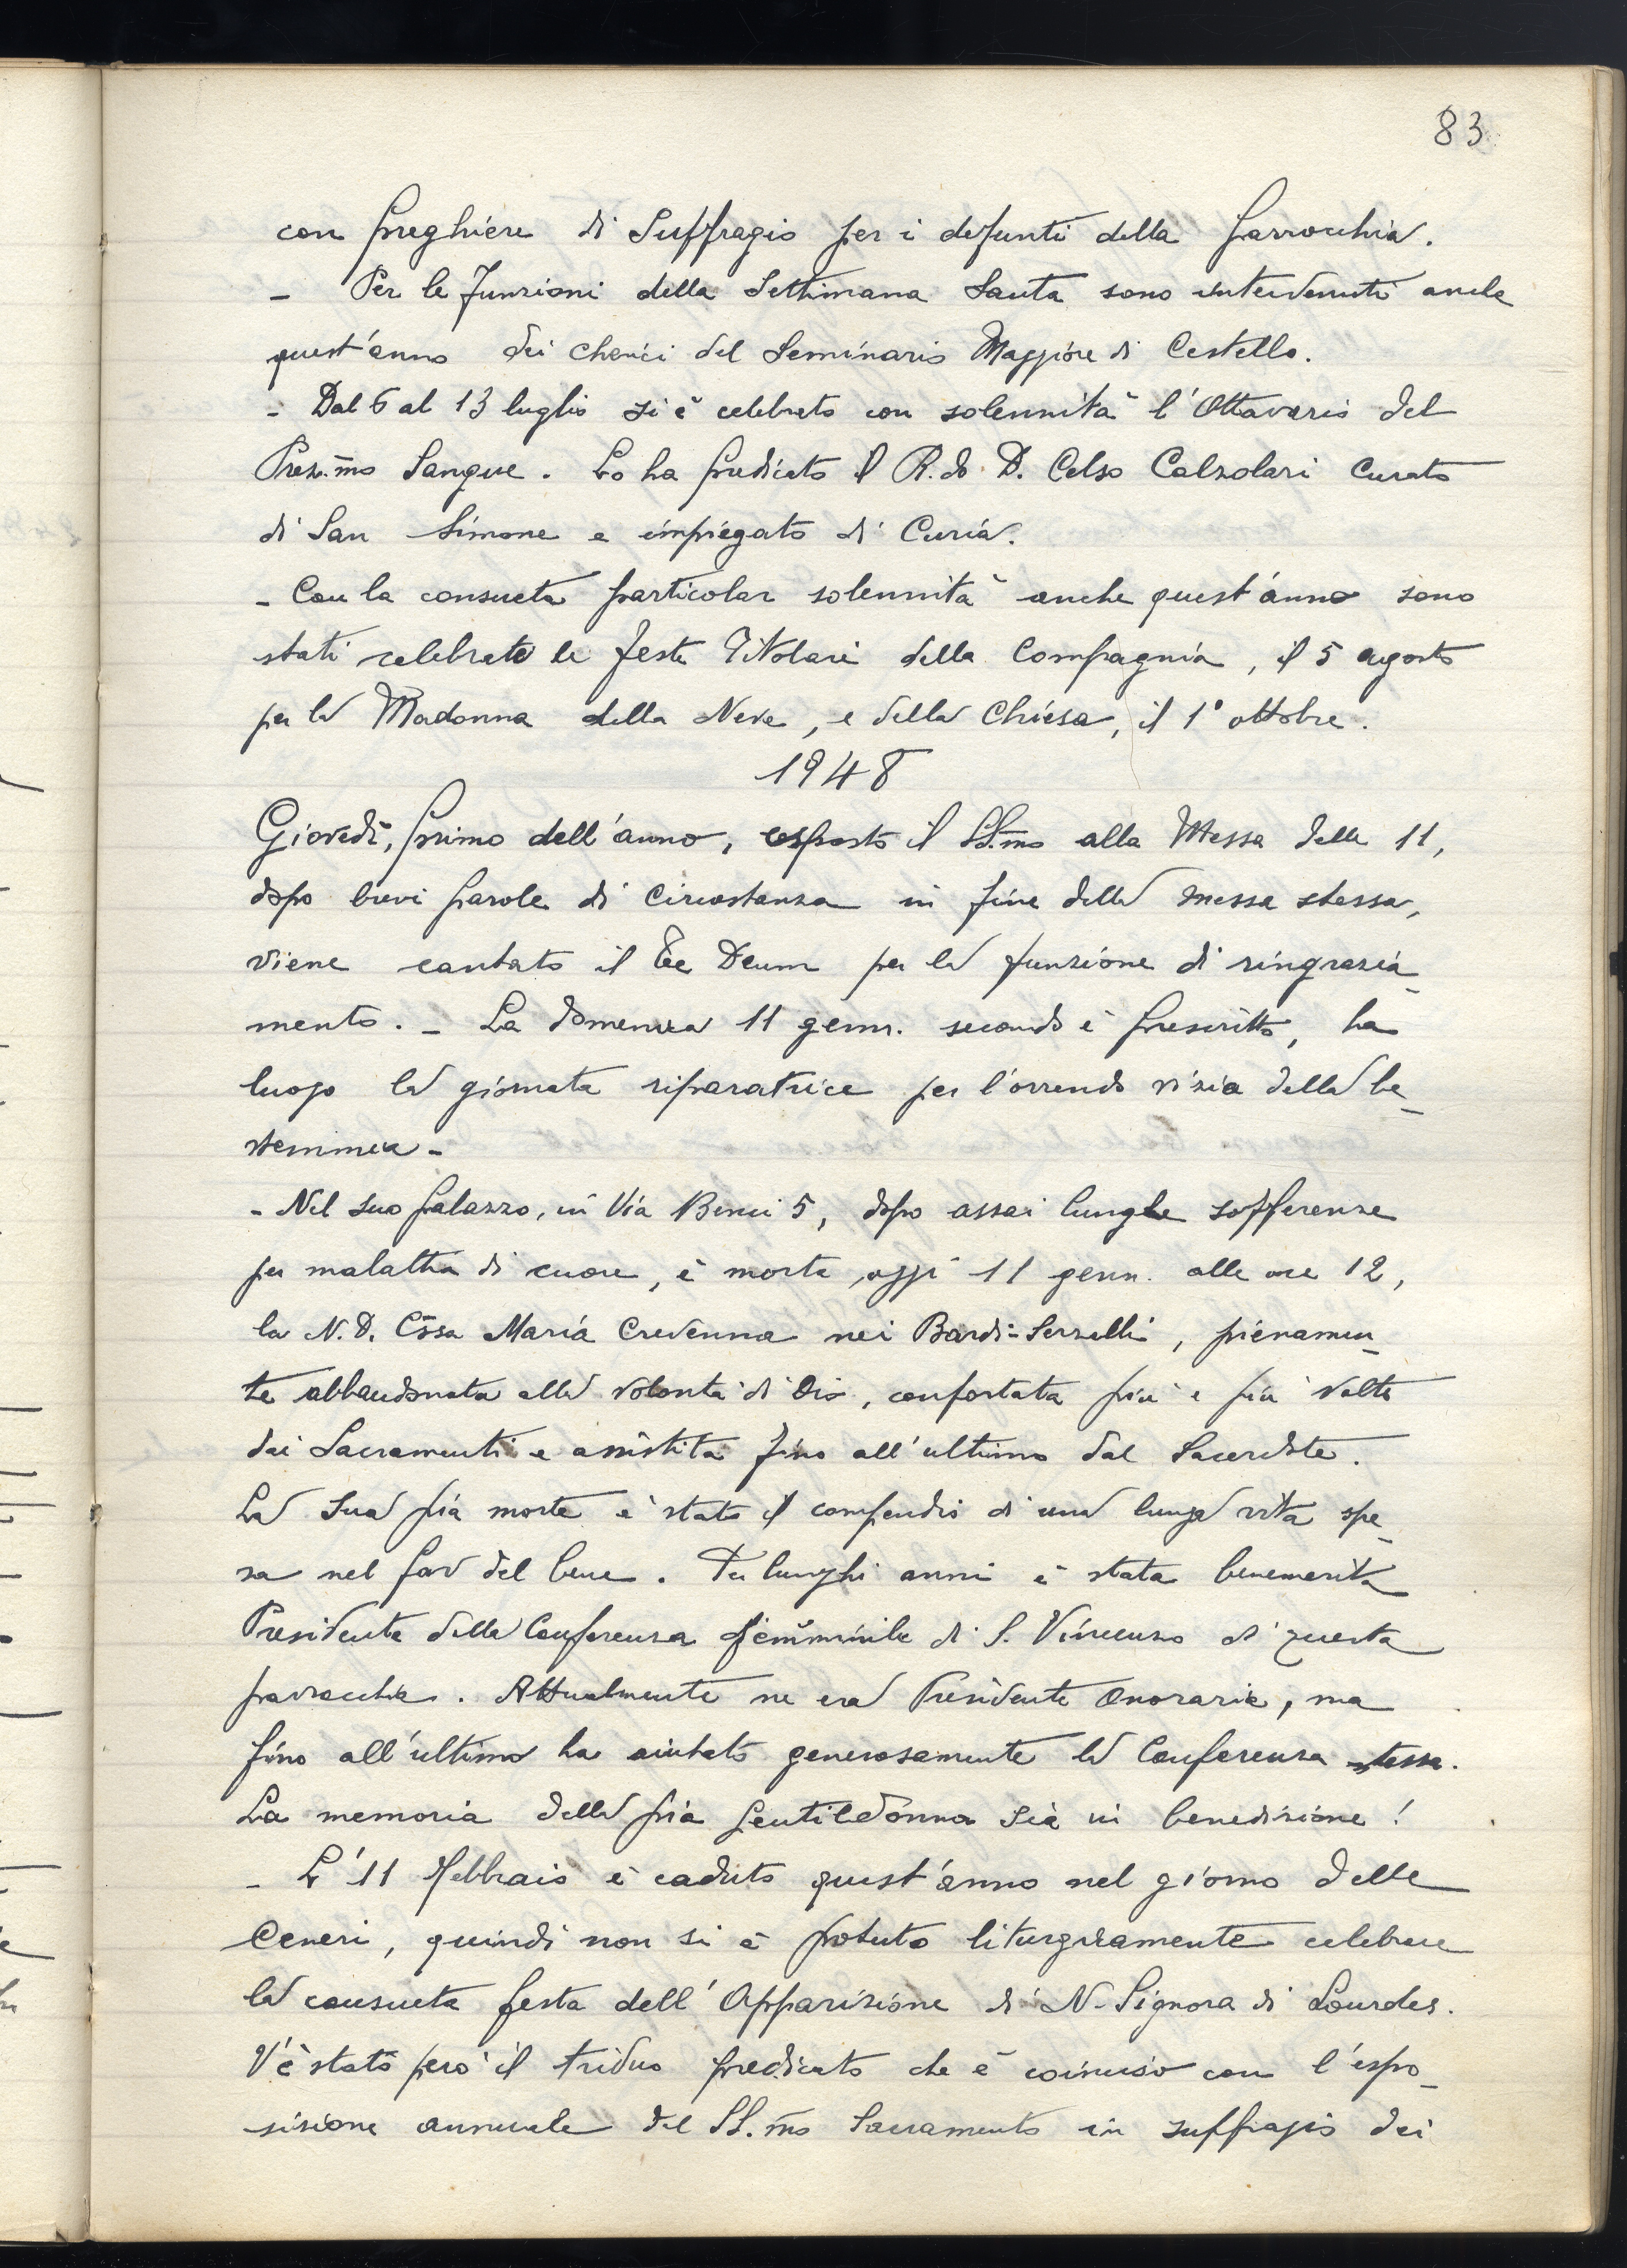 83
con preghiere di Suffragio per i defunti della parrocchia.
- Per le funzioni della Settimana Santa sono intervenuti anche
quest'anno dei chierici del Seminario Maggiore di Cestello.
- Dal 6 al 13 luglio si è celebrato con solennità l'Ottavario del
Prez.mo Sangue. Lo ha predicato il R.do D. Celso Calzolari Curato
di San Simone e impiegato di Curia.
- Con la consueta particolar solennità anche quest'anno sono
stati celebrate le feste Titolari della Compagnia, il 5 agosto
per la Madonna della Neve, e della Chiesa, il 1° ottobre.
1948
Giovedì, primo dell'anno, esposto il SS.mo alla Messa delle 11,
dopo brevi parole di circostanza in fine della messa stessa,
viene cantato il Te Deum per la funzione di ringrazia-
mento. - La domenica 11 genn. secondo è prescritto, ha
luogo la giornata riparatrice per l'orrendo vizio della be-
stemmia -
- Nel suo palazzo, in Via Benci 5, dopo assai lunghe sofferenze
per malattia di cuore, è morta, oggi 11 genn. alle ore 12,
la N.D. C.ssa Maria Credenna nei Bardi-Serzelli, pienamen-
te abbandonata alla volontà di Dio, confortata più e più volte
dai Sacramenti e assistita fino all'ultimo dal Sacerdote.
La sua pia morte è stato il compendio di una lunga vita spe-
sa nel far del bene. Per lunghi anni è stata benemerita
Presidente della Conferenza femminile di S. Vincenzo di questa
parrocchia. Attualmente ne era Presidente Onoraria, ma
fino all'ultimo ha aiutato generosamente la Conferenza stessa.
La memoria della pia gentildonna sia in benedizione!
- L'11 febbraio è caduto quest'anno nel giorno delle
Ceneri, quindi non si è potuto liturgicamente celebrare
la consueta festa dell'Apparizione di N. Signora di Lourdes.
V'è stato però il triduo predicato che è coinciso con l'espo-
sizione annuale del SS.mo Sacramento in suffragio dei